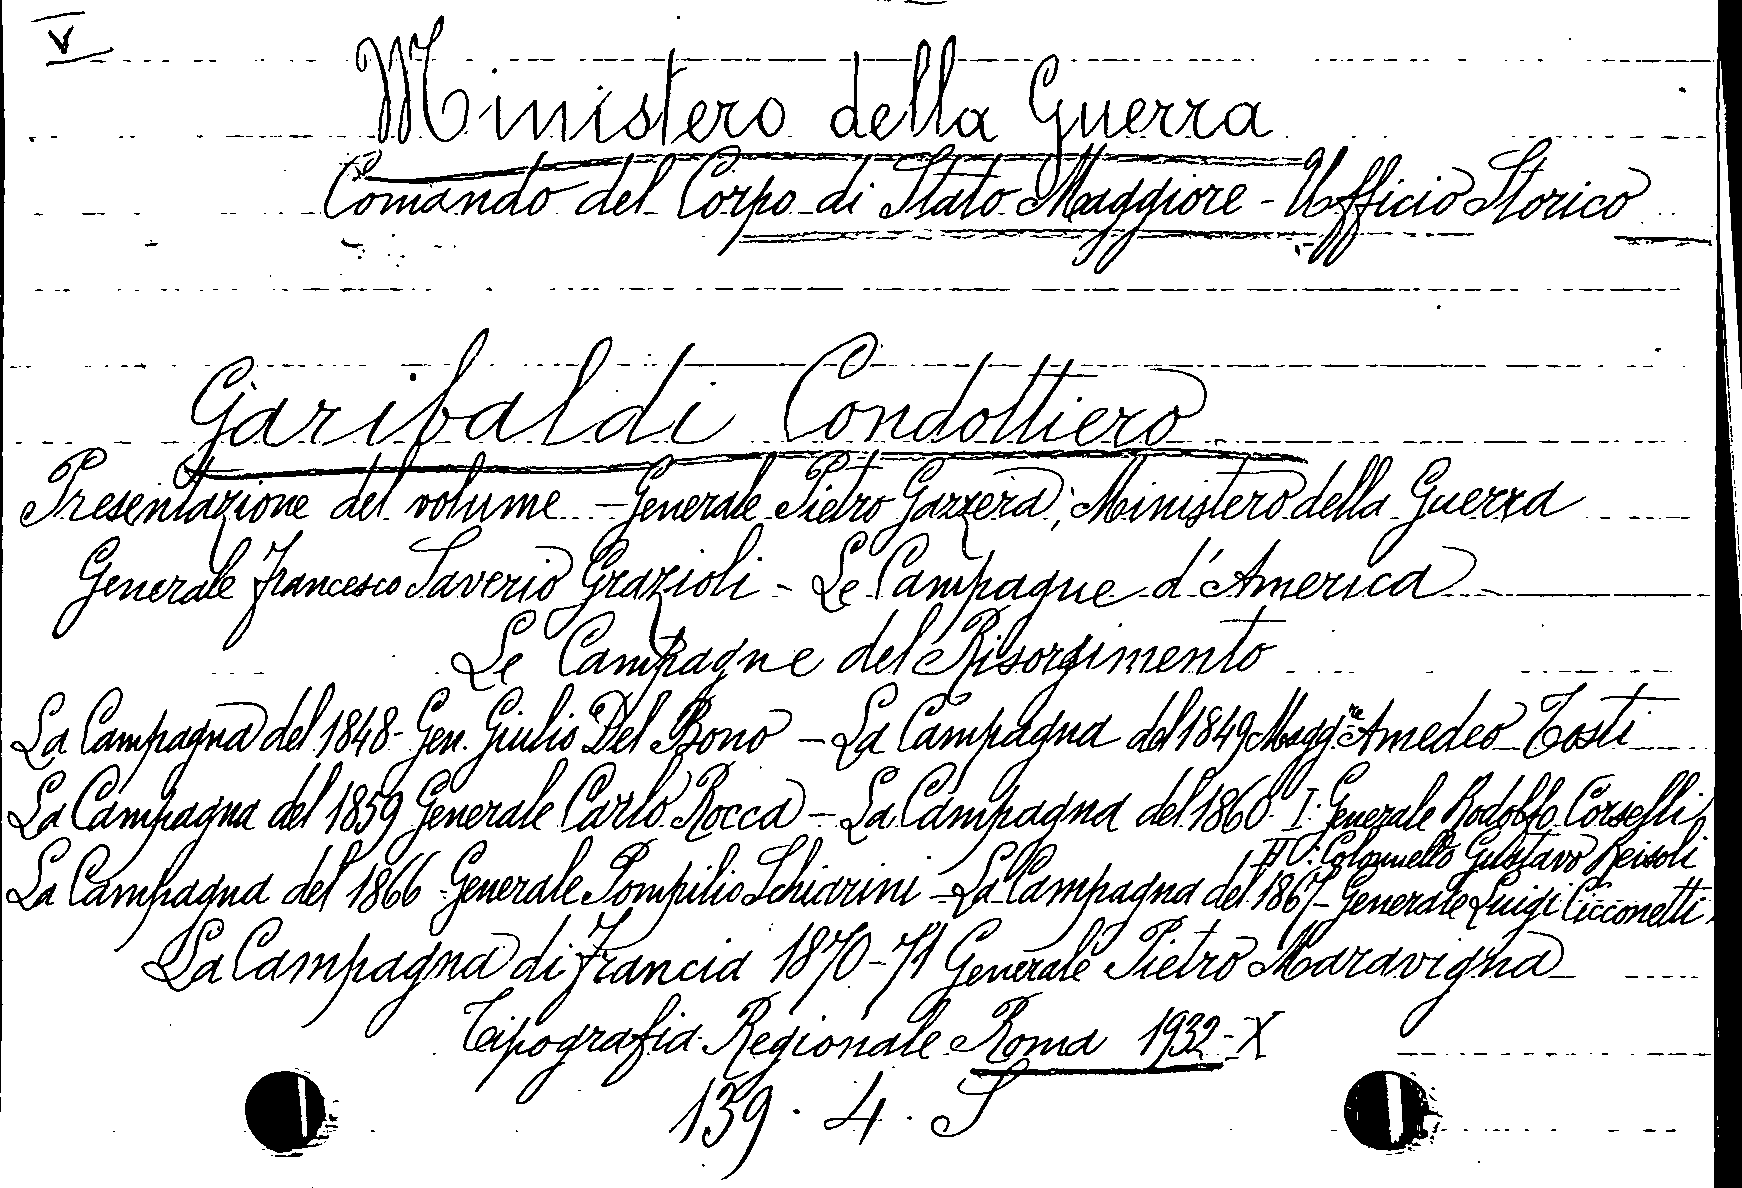 V
Ministero della Guerra
Comando del Corpo di Stato Maggiore - Ufficio Storico
Garibaldi Condottiero
Presentazione del volume - Generale Pietro Gazzera, Ministero della Guerra
Generale Francesco Saverio Grazioli - Le Campagne d'America
Le Campagne del Risorgimento
La Campagna del 1848 - Gen. Giulio Del Bono - La Campagna del 1849 Magg.re Amedeo Tosti
La Campagna del 1859 Generale Carlo Rocca - La Campagna del 1860. I. Generale Rodolfo Corselli,
II Colonnello Gustavo Reisoli
La Campagna del 1866 Generale Pompilio Schiarini - La Campagna del 1867 - Generale Luigi Cicconetti.
La Campagna di Francia 1870-71 Generale Pietro Maravigna
Tipografia Regionale Roma 1932-X
139. 4. S